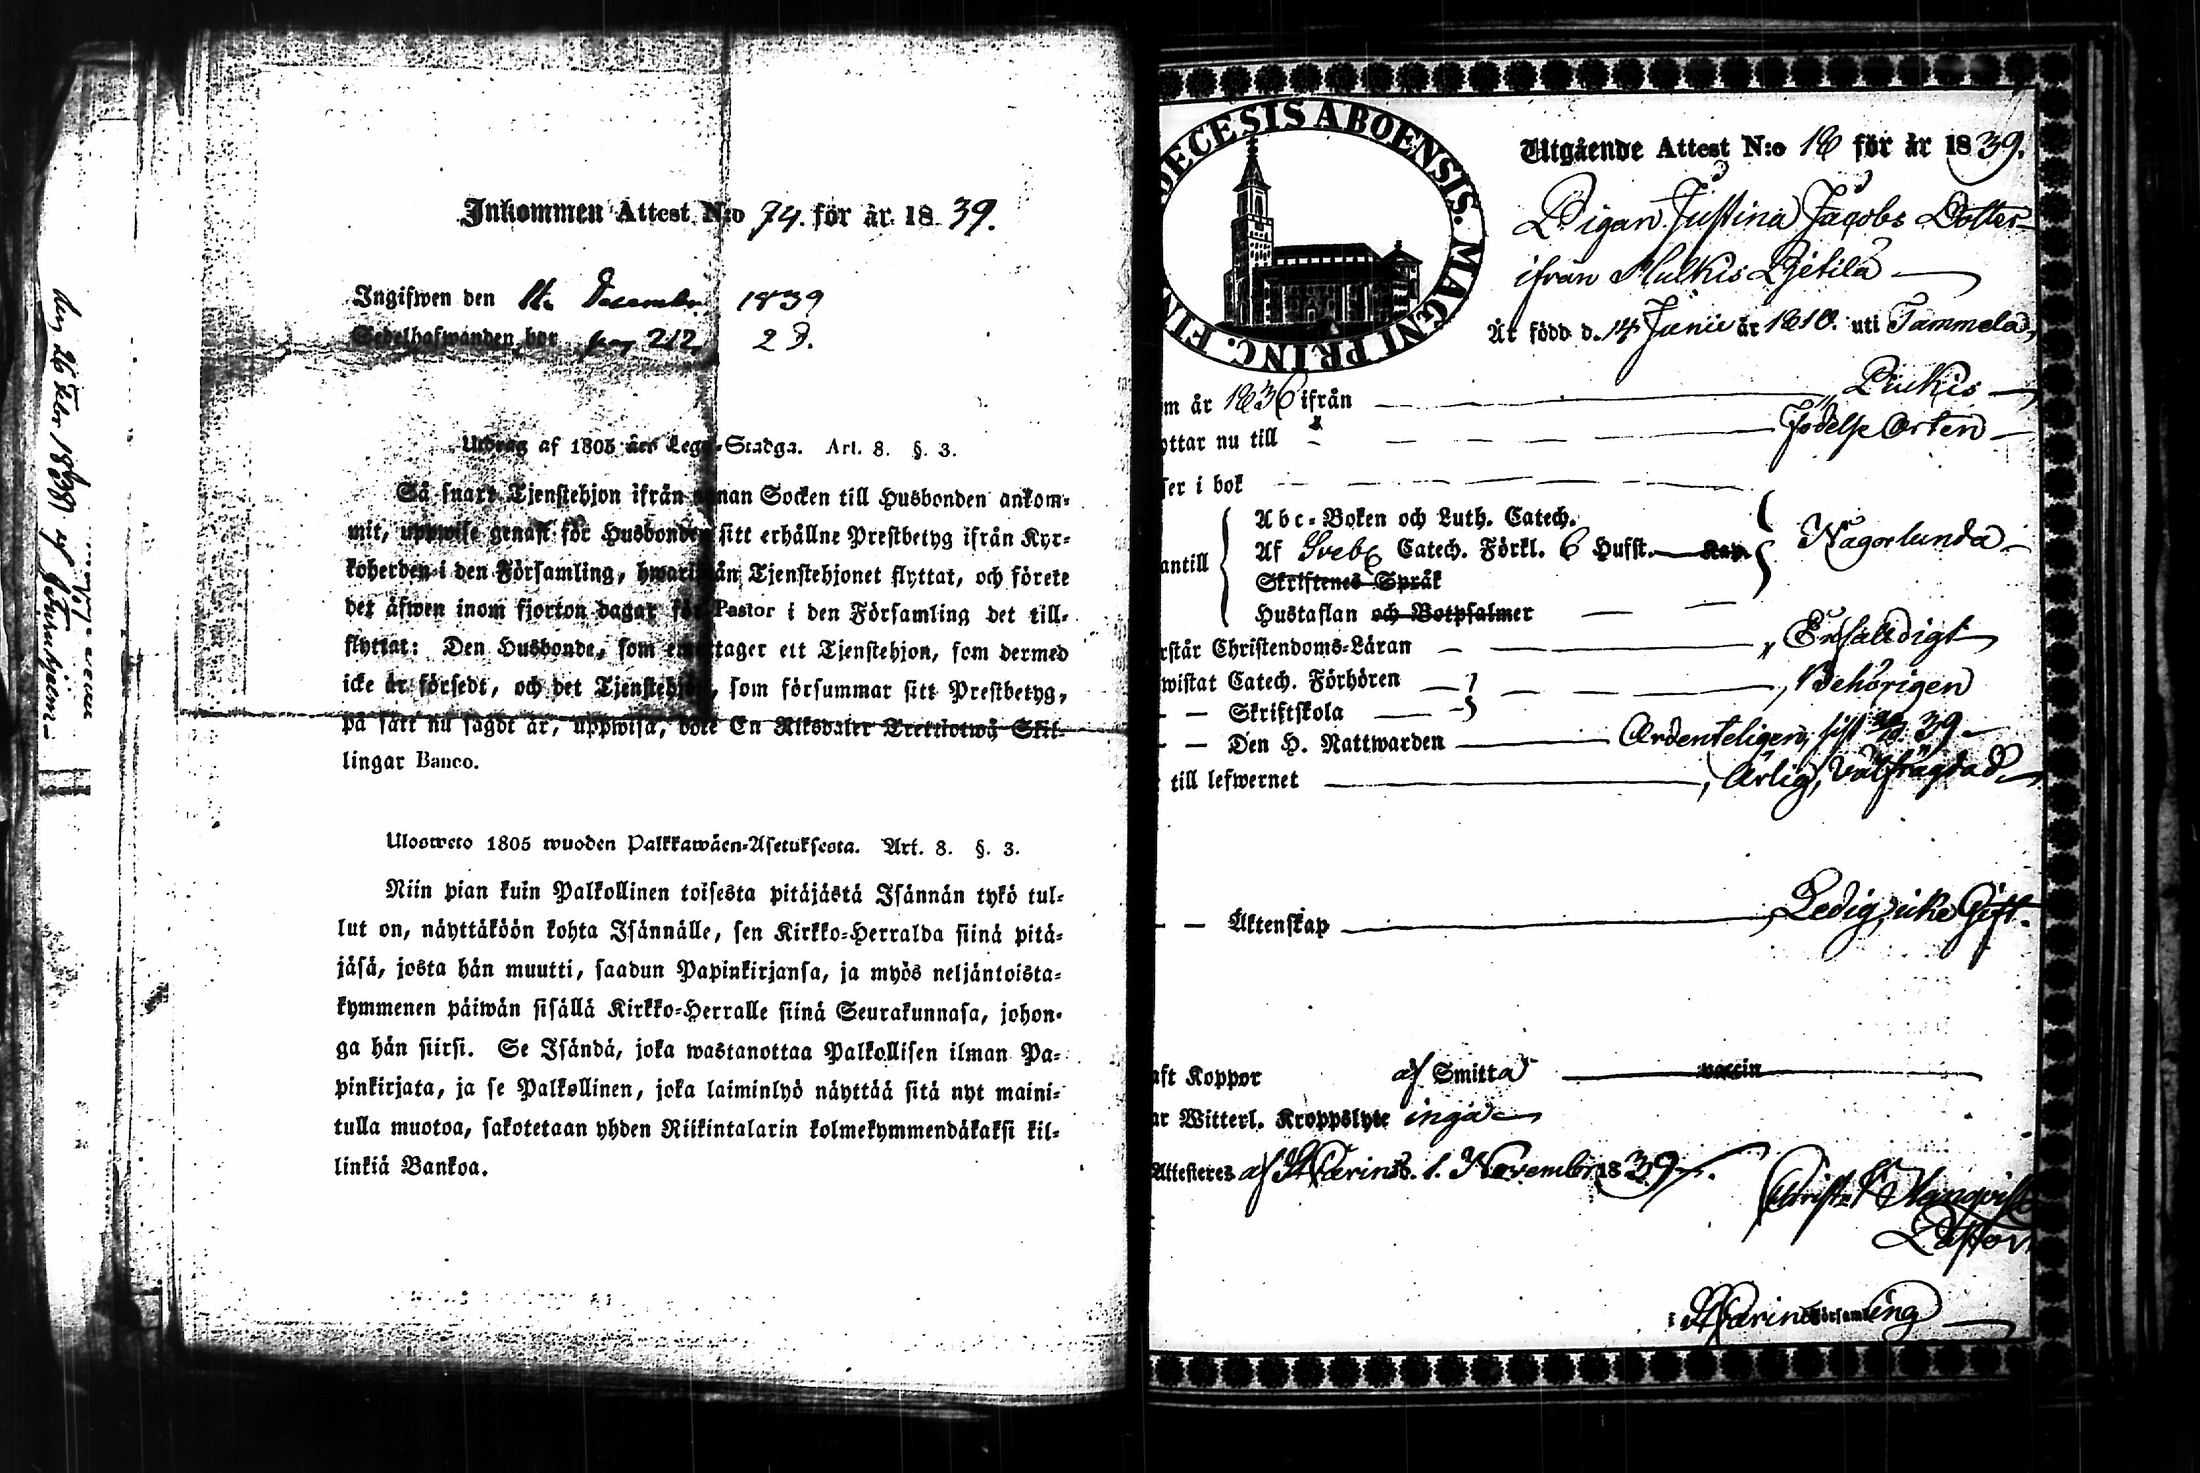 Inkommen Attest N:o 74. för år 1839.
Ingifwen den 11. December 1839
Sedelhafwanden bor pag 212 23.
Utdrag af 1805 års Lego-Stadga. Art. 8. §. 3.
Så snart Tjenstehjon ifrån annan Socken till Husbonden ankom-
mit, uppwise genast för Husbonden sitt erhållne Prestbetyg ifrån Kyr-
koherden i den Församling, hwarifrån Tjenstehjonet flyttat, och förete
det äfwen inom fjorton dagar för Pastor i den Församling det till-
flyttat: Den Husbonde, som emottager ett Tjenstehjon, som dermed
icke är försedt, och det Tjenstehjon, som försummar sitt Prestbetyg,
på sätt nu sagdt är, uppwisa, böte En Riksdaler Trettiotwå Skil-
lingar Banco.
Ulosweto 1805 wuoden Palkkawäen-Asetuksesta. Art. 8. §. 3.
Niin pian kuin Palkollinen toisesta pitäjästä Isännän tykö tul-
lut on, näyttäköön kohta Isännälle, sen Kirkko-Herralda siinä pitä-
jäsä, josta hän muutti, saadun Papinkirjansa, ja myös neljäntoista-
kymmenen päiwän sisällä Kirkko-Herralle siinä Seurakunnasa, johon-
ga hän siirsi. Se Isändä, joka wastanottaa Palkollisen ilman Pa-
pinkirjata, ja se Palkollinen, joka laiminlyö näyttää sitä nyt maini-
tulla muotoa, sakotetaan yhden Riikintalarin kolmekymmendäkaksi kil-
linkiä Bankoa.
DECESIS ABOENSIS. MAGNI PRINC. FIN
Utgående Attest N:o 18 för år 1839.
Pigan Justina Jacobs Dotter
ifrån
Är född d. 14 Junii år 1810. uti Tammela,
m år 1836 ifrån Piikis
yttar nu till Födelse Orten
ser i bok
Abc-Boken och Luth. Catech.
Af Sveb. Catech. Förkl. 6 Husst. Kap.
antill Någorlunda
Skriftenes Språk
Hustaflan och Botpsalmer
rstår Christendoms-Läran Enfaldigt
wistat Catech. Förhören Behörigen
— — Skriftskola
— — Den H. Nattwarden Ordenteligen, sist 39
till lefwernet Ärlig, välfrägdad
— — Äktenskap Ledig, icke Gift.
aft Koppor af Smitta vaccin
ar Witterl. Kroppslyte inga
Attesteres af St Karins d. 1. November 1839.
Christ.
Pastor
i St Karins Församling